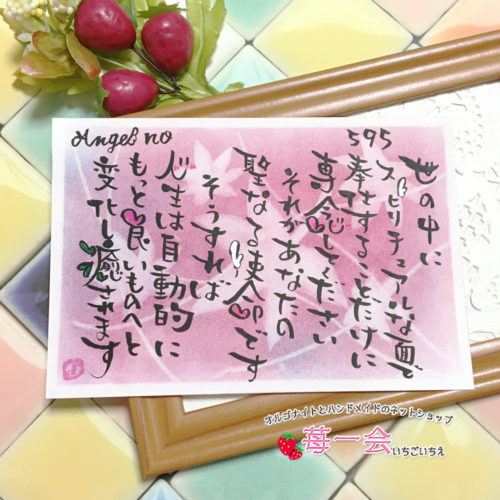 Angel no
595
世の中に
スピリチュアルな面で
奉仕することだけに
専念してください
それがあなたの
聖なる使命です
そうすれば
人生は自動的に
もっと良いものへと
変化し癒されます
オルゴナイトとハンドメイドのネットショップ
苺一会
いちごいちえ